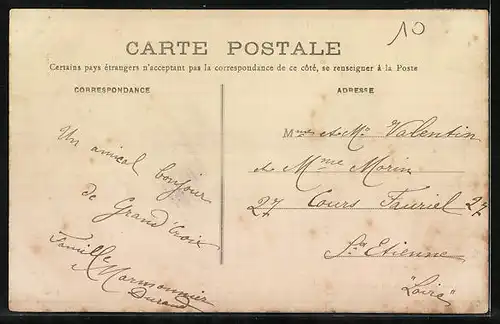 10
CARTE POSTALE
Certains pays étrangers n'acceptant pas la correspondance de ce côté, se renseigner à la Poste
CORRESPONDANCE
Un amical bonjour
de Grand'Croix
Famille
Marmonnier
Durand
ADRESSE
et Mr Valentin
et Mme Morin
27 Cours Fauriel 27
St Etienne
"Loire"